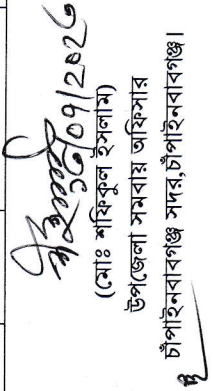 ০৭/২০২৫
(মোঃ শফিকুল ইসলাম)
উপজেলা সমবায় অফিসার
চাঁপাইনবাবগঞ্জ সদর,চাঁপাইনবাবগঞ্জ।